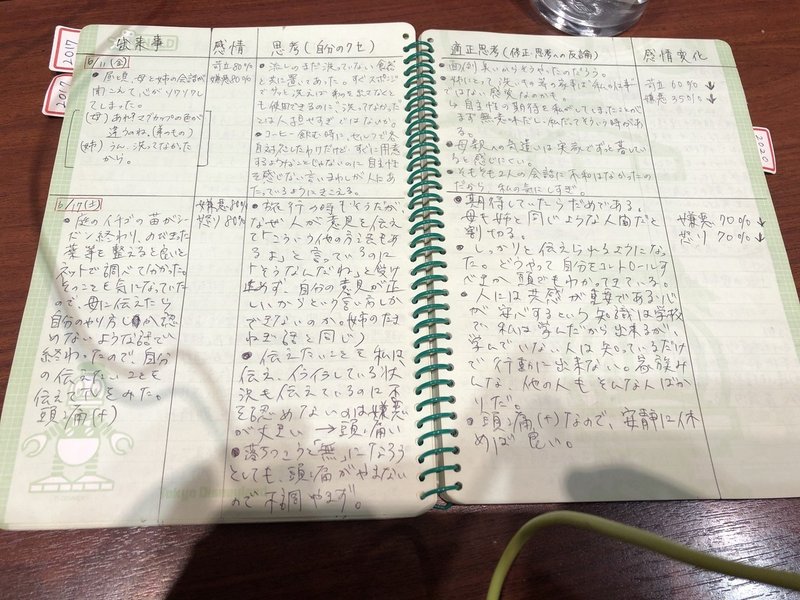 出来事
感情
思考(自分のクセ)
適正思考(修正思考への反論)
感情変化
2017
2017
2020
6/11(金)
・居間、母と姉の会話が
聞こえて、心がソワソワして
しまった。
(母)あれ?マグカップの色が
違うのね。
(姉)うん、洗ってなかった
から。
苛立 80%
嫌悪 80%
・流しのまだ洗っていない食器
と共に置いてあった。すぐスポンジ
でサッと洗えば
も使用できるのに、洗ってなかった
とは人任せすぎではないか。
・コーヒー飲む時に、せいいって
するようなことじゃないのに自主性
を感じない言いまわしが人にあ
たっているようにきこえる。
・面倒臭いからそうやったのだろう。
・姉にとって洗い物等の家事は私が
ではない感覚なのかも。
↳自主性の期待を私がしてしまったことがま
ず無意味だし、私だってそういう時があ
る。
・母親への気遣いは実家でずっと暮してい
ると感じにくい。
・そもそも2人の会話に不和はなかったの
だから、私の気にしすぎ。
苛立 60%↓
嫌悪 35%↓
6/17(土)
・庭のイチゴの苗がシー
ズン終わり、のびきった
葉等を整えると良いと
ネットで調べて分かった。
そのことを気になっていた
ので、母に伝えたら
自分のやり方しか認
めないような話で
終わったので、自分
の伝えたいことを
伝えて
みた。
頭痛(+)
嫌悪 80%
怒り 80%
・旅行の時もそうだが、
なぜ人が意見を伝え
て「こういう他の方法もあ
るよ」と言っているのに
「そうなんだね」と受け
止めず、自分の意見が正
しいからという言い方しか
できないのか。(姉のたま
ねぎ話と同じ)
・伝えたいことを私は
伝え、イライラしている状
況も伝えているのに不
を認めないのは嫌悪
が大きい→頭痛い
・落ちつこうと「無」になろう
としても、頭痛がやまない
ので
・期待していたらだめである。
母も姉と同じような人間だと
割りきる。
・しっかりと伝えられるようになっ
た。どうやって自分をコントロールす
べきか、頭でもわかってきている。
・人には共感が重要である、心
が安心するという知識は学校
で私は学んだから出来るが、
学んでいない人は知っているだけ
で行動に出来ない。家族み
んな、他の人もそんな人ばか
りだ。
・頭痛(+)なので、安静に休
めば良い。
嫌悪 70%↓
怒り 70%↓